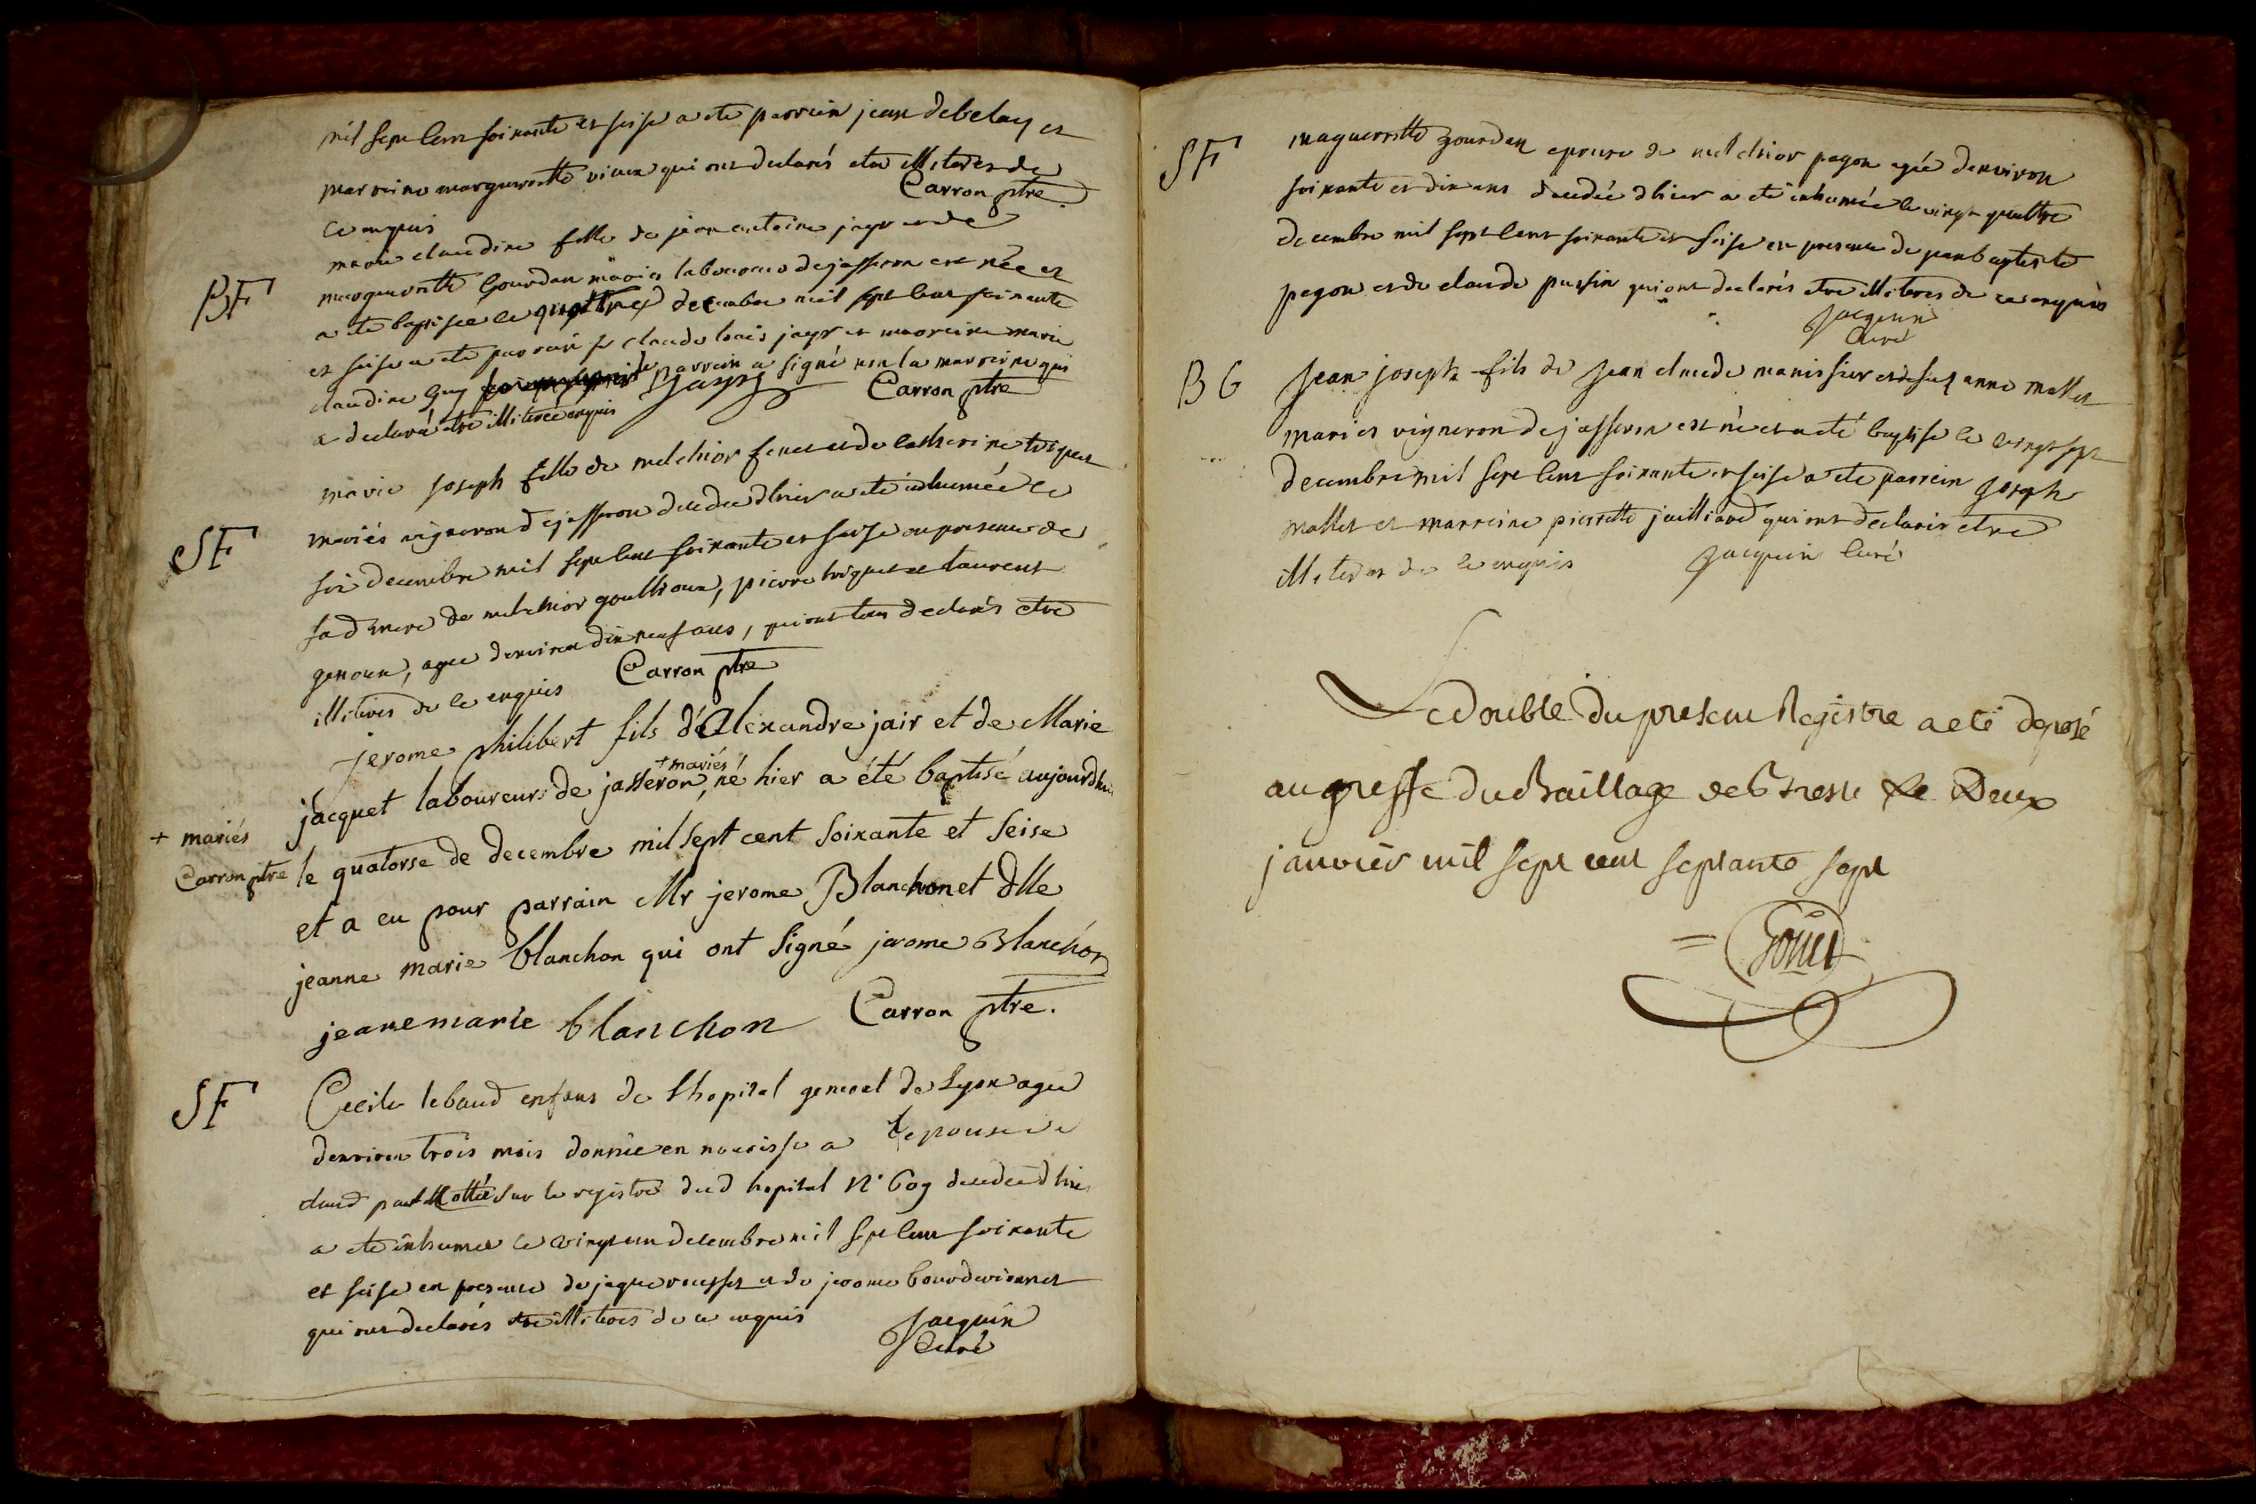 mil sept cent soixante et seise a ete parrein jean debelay et
marreine marguerritte vieux qui ont declarés etre illiteres de
ce enquis Carron ptre
BF marie claudine fille de jean antoine jayr et de
marguerritte Gourdan mariés laboureurs de jasseron est née et
a ete baptisée le quattre decembre mil sept cent soixante
et seise a ete parrain sr claude louis jayr et marreine marie
claudine Guy parrein a signé non la marreine qui
a declaré etre illiteré enquis Jayr Carron ptre
SF marie joseph fille de melchior et de catherine triquet
mariés vigneron de jasseron decedée d'hier a ete inhumée le
six decembre mil sept cent soixante et seise en presence de
sad mere de melchior goullioux, pierre triquet et laurent
genoux, agee denviron dix neuf ans, qui ont tous declarés etre
illiteres de ce enquis Carron ptre
jerome philibert fils d'Alexandre jair et de Marie
jacquet laboureurs de jasseron, + mariés né hier a été baptisé aujourdhui
+ mariés Carron ptre
le quatorse de decembre mil sept cent soixante et seise
et a eu pour parrain Mr jerome Blanchon et dlle
jeanne marie blanchon qui ont signé jerome Blanchon
jeane marie blanchon Carron ptre.
SF Cecile lebaud enfans de l'hopital general de Lyon agée
denviron trois mois donnée en nourisse a l'epouse de
claud paul sur le registre dud hopital N° 609 decedée d'hier
a ete inhumée le vingt un decembre mil sept cent soixante
et seise en presence de jaque rousset et de jerome bourdevionnet
qui ont declarés etre illiteres de ce enquis Jacquin
Curé
SF marguerritte gourdan epouse de melchior pagon agée denviron
soixante et dix ans decedée d'hier a ete inhumée le vingt quattre
decembre mil sept cent soixante et seise en presence de jean baptiste
pagon et de claude putin qui ont declarés etre illiteres de ce enquis
Jacquin
Curé
BG Jean joseph fils de Jean claude manissier et de suzanne mallet
mariés vigneron de jasseron est né et a eté baptisé le vingt sept
decembre mil sept cent soixante et seise a ete parrein joseph
mallet et marreine pierrette juilliard qui ont declarés etre
illiteres de ce enquis Jacquin Curé
Le double du present Registre a eté deposé
au greffe du Bailliage de Bresse Le Deux
janvier mil sept cent septante sept